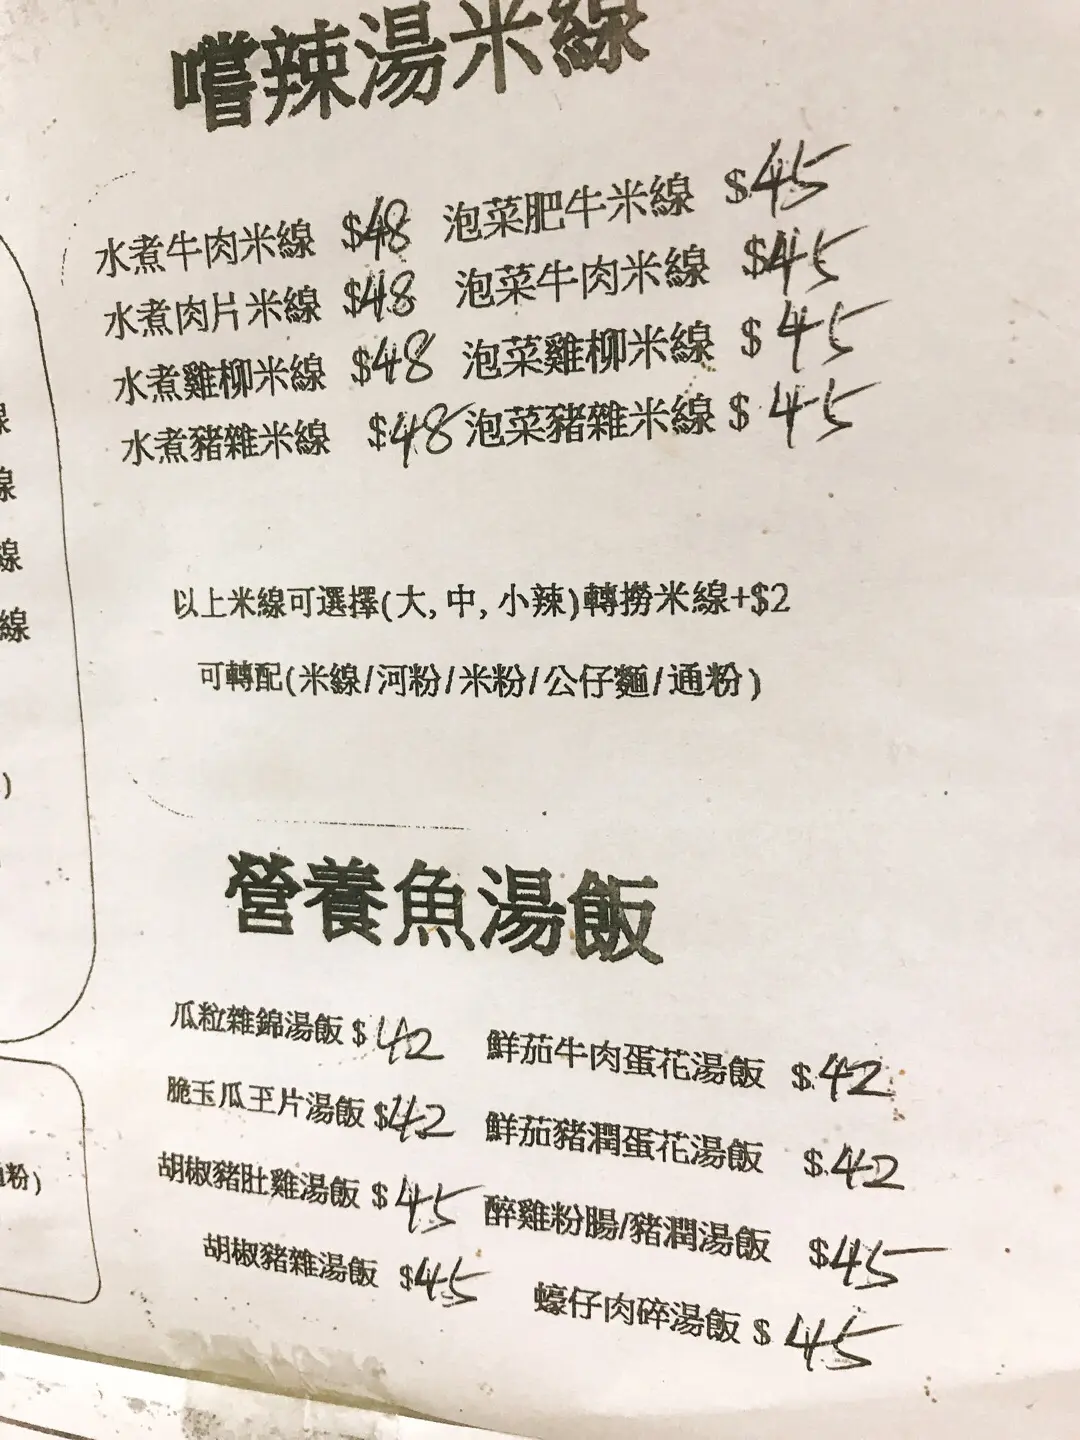 嚐辣湯米線
水煮牛肉米線 $48 泡菜肥牛米線 $45
水煮肉片米線 $48 泡菜牛肉米線 $45
水煮雞柳米線 $48 泡菜雞柳米線 $45
水煮豬雜米線 $48 泡菜豬雜米線 $45
線
線
線
線
以上米線可選擇(大,中,小辣)轉撈米線+$2
可轉配(米線/河粉/米粉/公仔麵/通粉)
)
營養魚湯飯
瓜粒雜錦湯飯 $42 鮮茄牛肉蛋花湯飯 $42
脆玉瓜玊片湯飯 $42 鮮茄豬潤蛋花湯飯 $42
通粉)
胡椒豬肚雞湯飯 $45 醉雞粉腸/豬潤湯飯 $45
胡椒豬雜湯飯 $45 蠔仔肉碎湯飯 $45